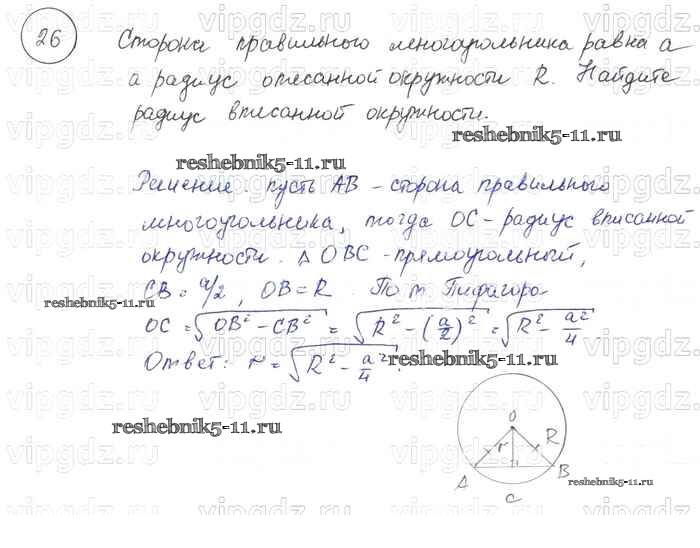 26
Сторона правильного многоугольника равна а
а радиус описанной окружности R. Найдите
радиус вписанной окружности.
reshebnik5-11.ru
reshebnik5-11.ru
Решение. пусть AB - сторона правильного
многоугольника, тогда OC - радиус вписанной
окружности. △ OBC - прямоугольный,
CB = a/2, OB = R. По т. Пифагора
reshebnik5-11.ru
OC = √(OB² - CB²) = √(R² - (a/2)²) = √(R² - a²/4)
Ответ: r = √(R² - a²/4).
reshebnik5-11.ru
O
r
R
A
B
C
reshebnik5-11.ru
vipgdz.ru